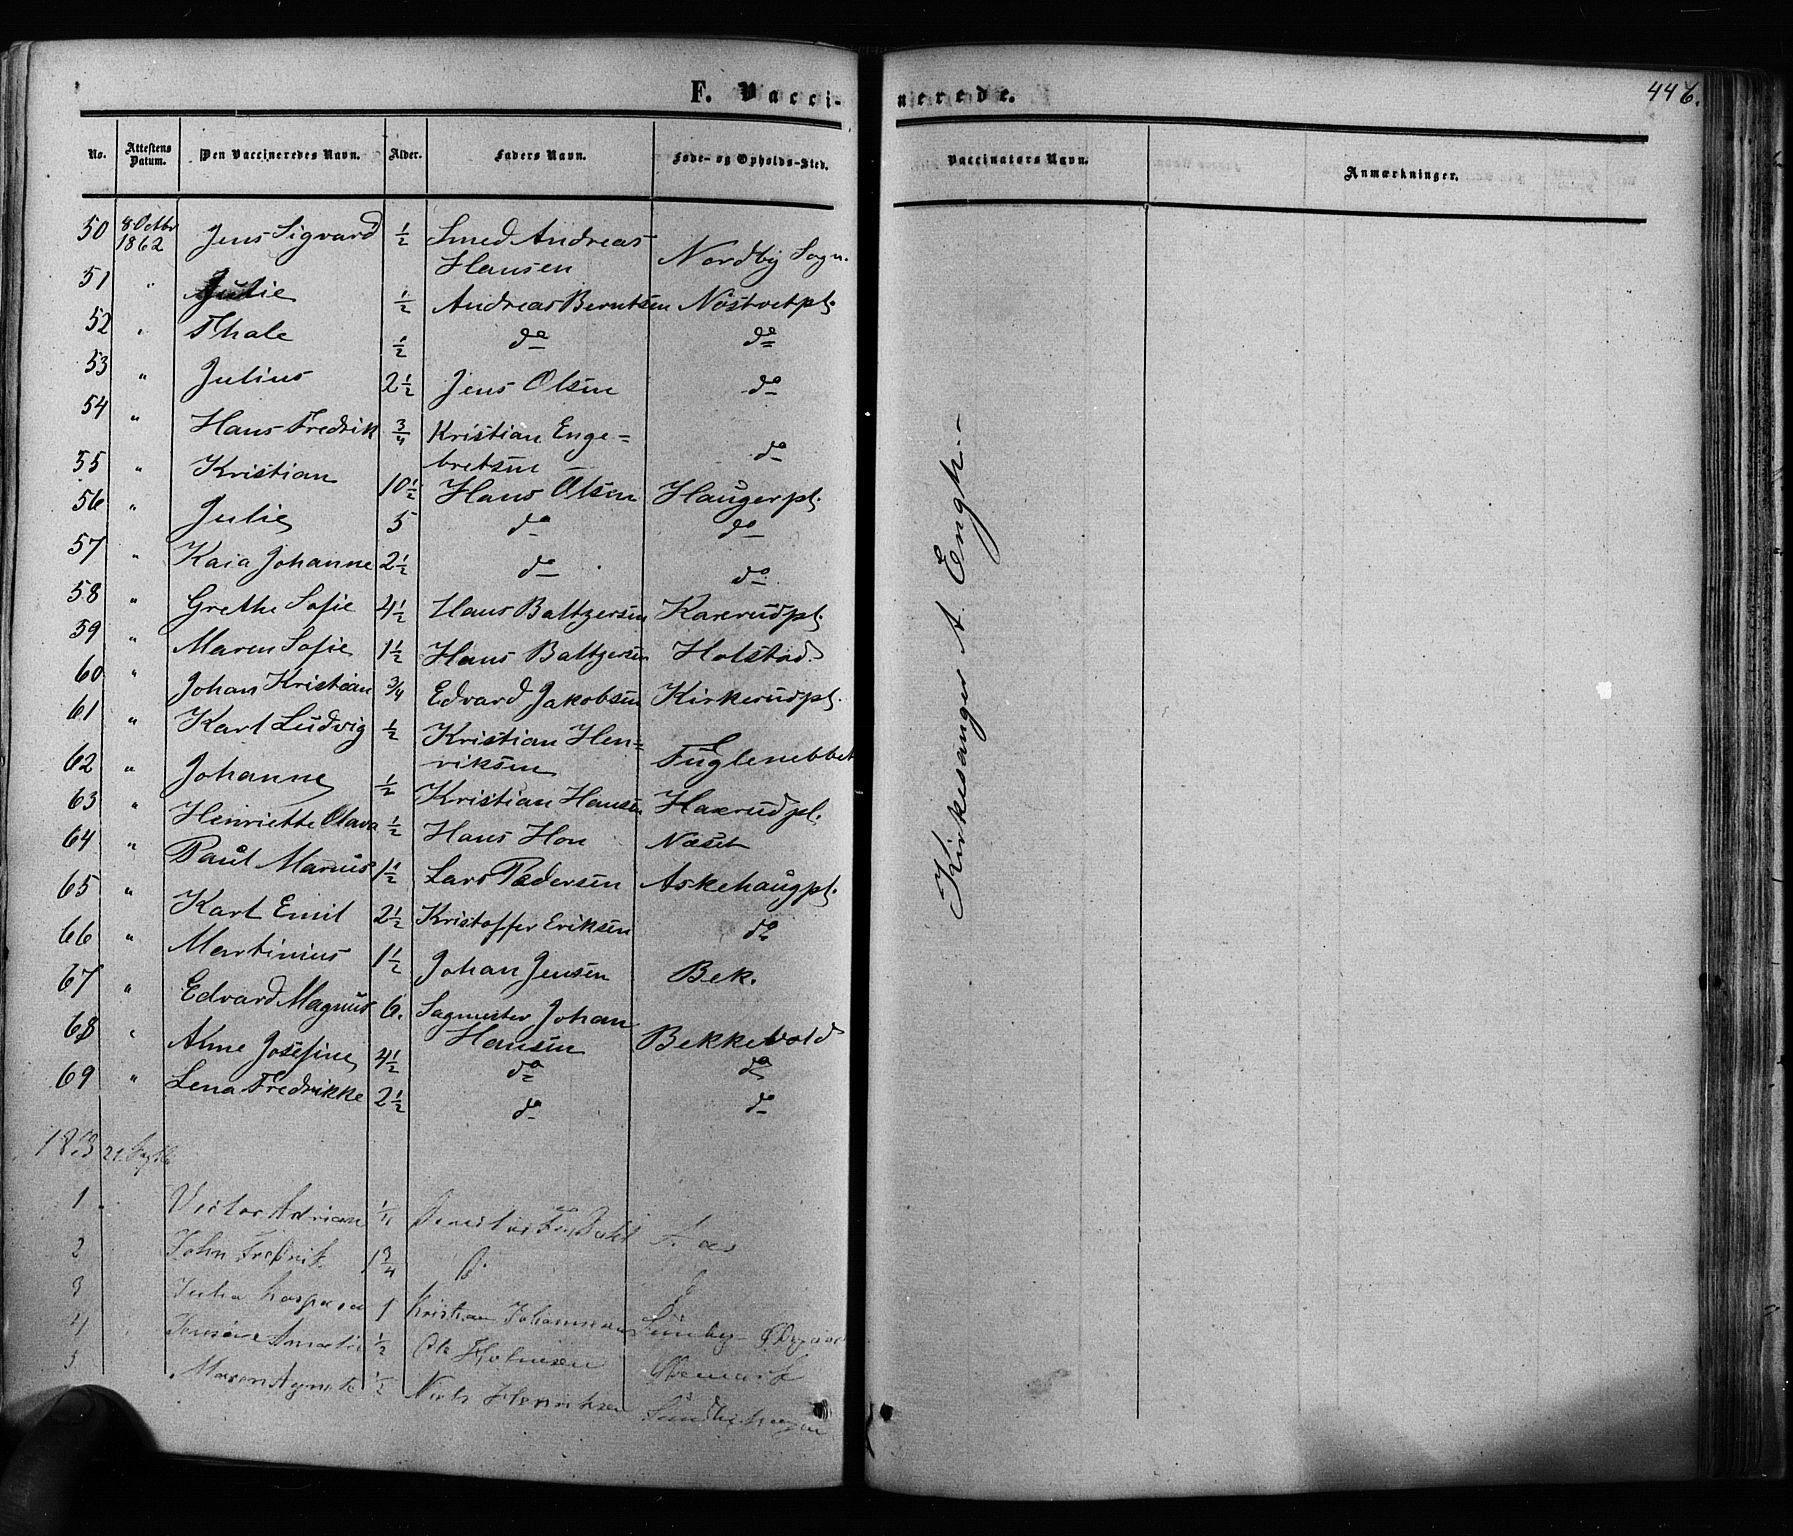 F. Vacci-
nerede.
446.
No. Attestens Datum. Den Vaccineredes Navn. Alder. Faders Navn. Føde- og Opholds-Sted. Vaccinatørs Navn. Anmærkninger.
50 8 Octbr 1862 Jens Sigvard 1/2 Smed Andreas Hansen Nordby Sogn.
51 " Julie 1/2 Andreas Berntsen Nøstvetpl.
52 " Thale 1/2 do do
53 " Julius 2 1/2 Jens Olsen do
54 " Hans Fredrik 3/4 Kristian Enge=
bretsen do
55 " Kristian 10 1/2 Hans Olsen Haugerpl.
56 " Julie 5 do do
57 " Kaia Johanne 2 1/2 do do
58 " Grethe Sofie 4 1/2 Hans Baltzersen Kaxerudpl.
59 " Maren Sofie 1 1/2 Hans Baltzersen Holstad.
60 " Johan Kristian 3/4 Edvard Jakobsen Kirkerudpl.
61 " Karl Ludvig 1/2 Kristian Hen=
riksen Fuglenebbet
62 " Johanne 1/2 Kristian Hansen Haxerudpl.
63 " Henriette Olava 1/2 Hans Hon Næset
64 " Paul Marius 1 1/2 Lars Pedersen Askehaugpl.
65 " Karl Emil 2 1/2 Kristoffer Eriksen do
66 " Martinius 1 1/2 Johan Jensen Bek.
67 " Edvard Magnus 6. Sagmester Johan
Hansen Bekkevold
68 " Anne Josefine 4 1/2 do do
69 " Lena Fredrikke 2 1/2 do do
21
1 Victor Adrian Aas
2 John Fredrik 1 3/4
3 Julia 1 Kristian Johannesen
4 1/2 Ole
5 Maren Agnete 1/2 Niels Henriksen
Kirkesanger A. Engh.-